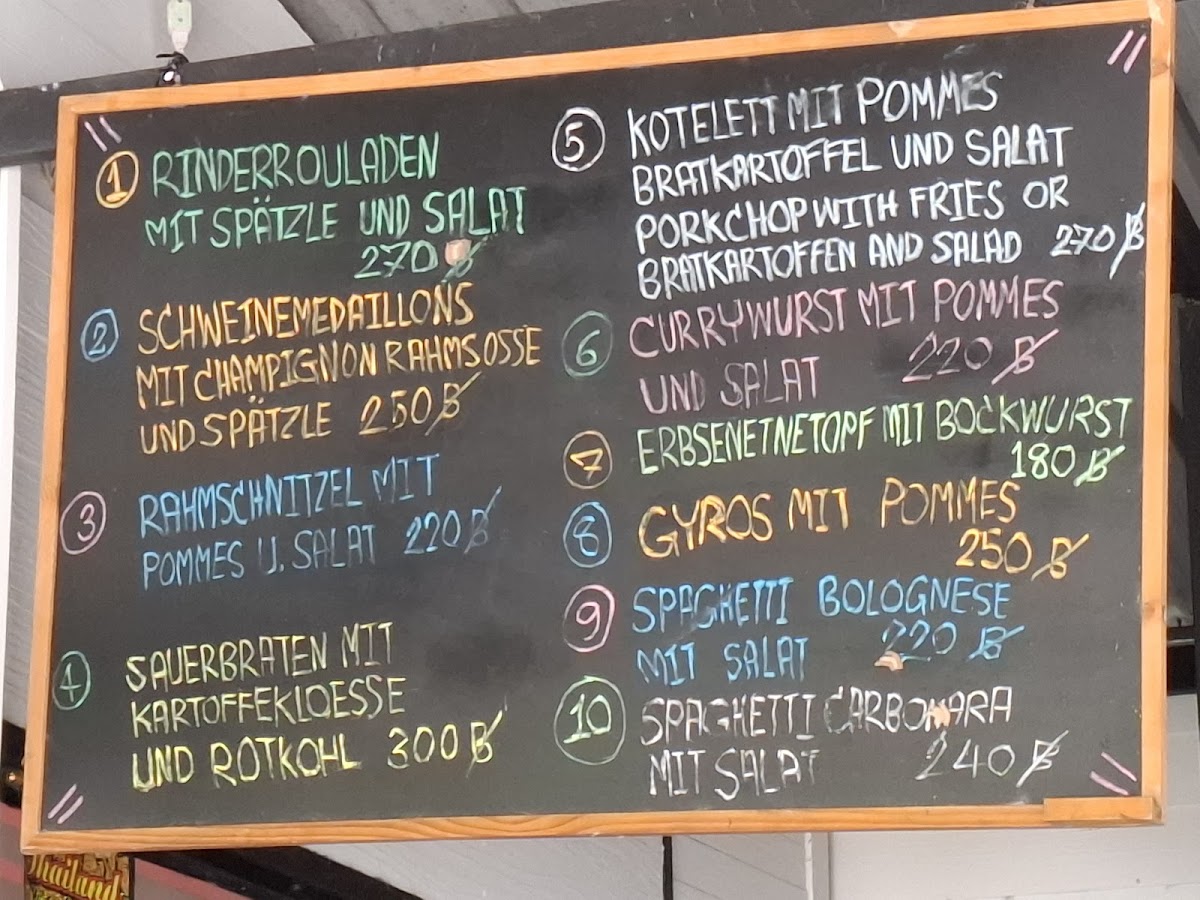 1 RINDERROULADEN
MIT SPÄTZLE UND SALAT
270 ฿
2 SCHWEINEMEDAILLONS
MIT CHAMPIGNON RAHMSOSSE
UND SPÄTZLE 250 ฿
3 RAHMSCHNITZEL MIT
POMMES U. SALAT 220 ฿
4 SAUERBRATEN MIT
KARTOFFEKLOESSE
UND ROTKOHL 300 ฿
5 KOTELETT MIT POMMES
BRATKARTOFFEL UND SALAT
PORKCHOP WITH FRIES OR
BRATKARTOFFEN AND SALAD 270 ฿
6 CURRYWURST MIT POMMES
UND SALAT 220 ฿
7 ERBSENETNETOPF MIT BOCKWURST
180 ฿
8 GYROS MIT POMMES
250 ฿
9 SPAGHETTI BOLOGNESE
MIT SALAT 220 ฿
10 SPAGHETTI CARBONARA
MIT SALAT 240 ฿
Thailand